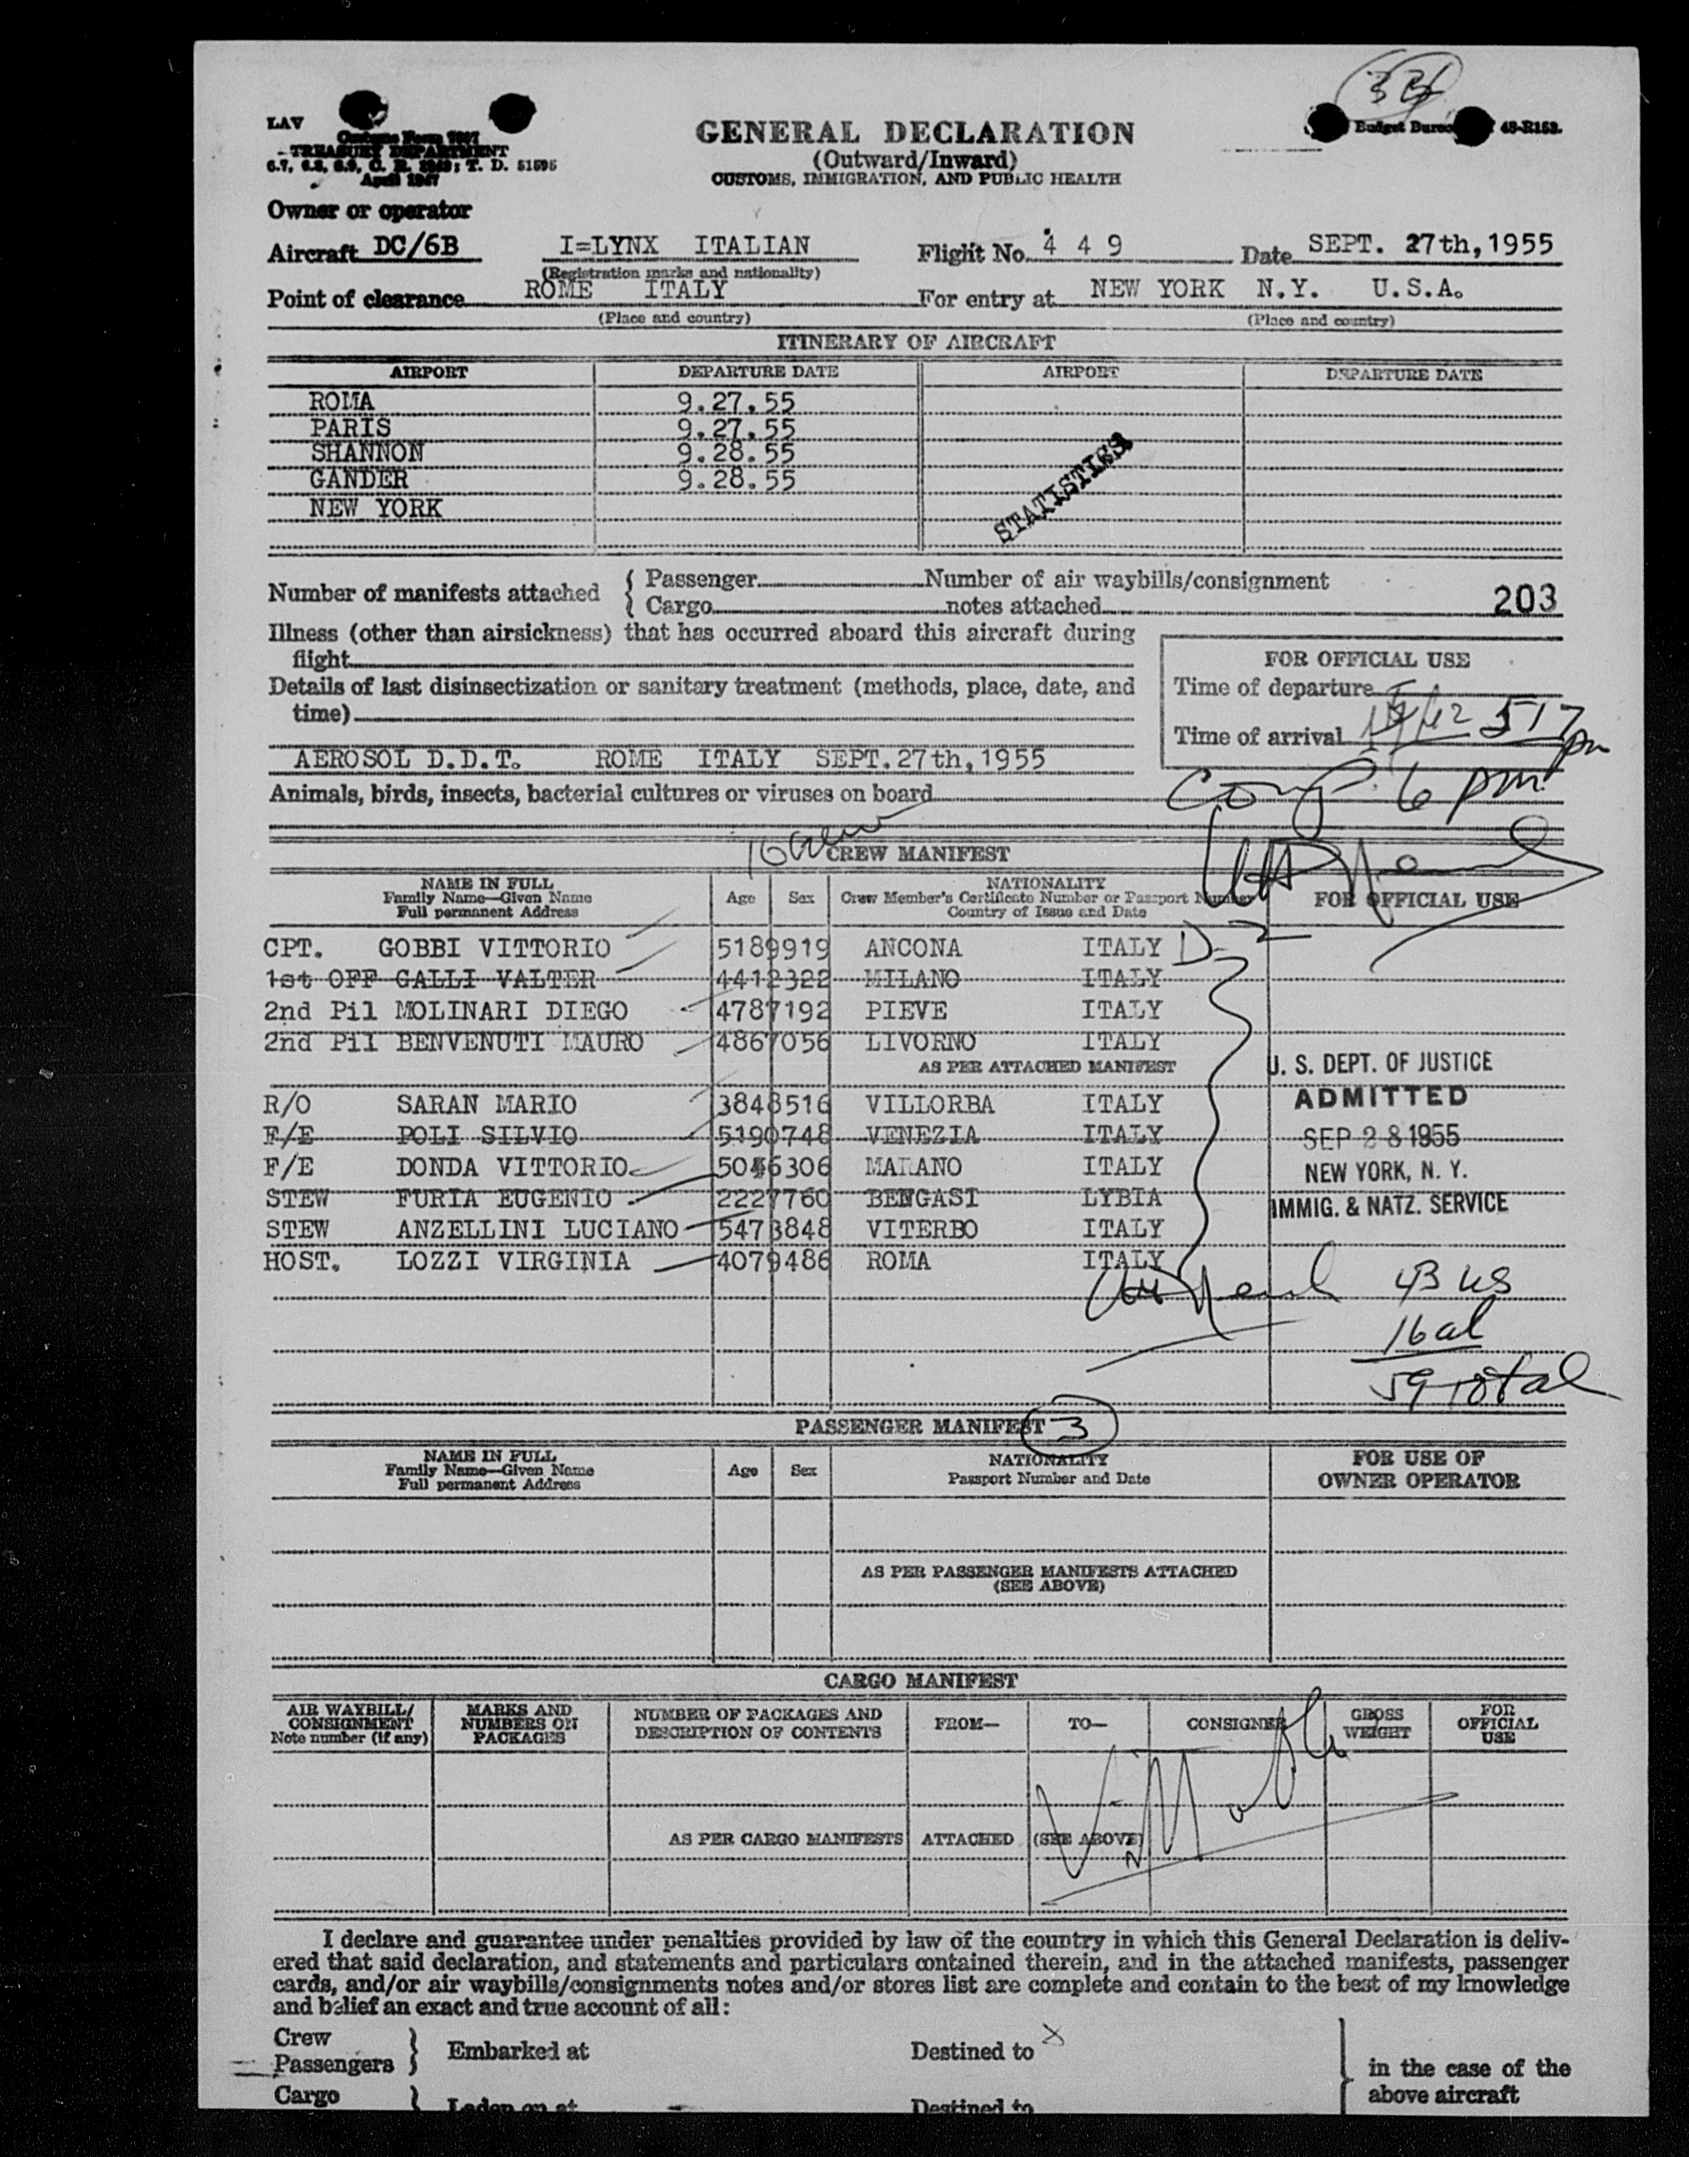 33
LAV
Customs Form 7507
TREASURY DEPARTMENT
6.7, 6.8, 6.9, C. R. 1943; T. D. 51595
April 1947
Budget Bureau 48-R153.
GENERAL DECLARATION
(Outward/Inward)
CUSTOMS, IMMIGRATION, AND PUBLIC HEALTH
Owner or operator
Aircraft DC/6B I=LYNX ITALIAN Flight No. 4 4 9 Date SEPT. 27th,1955
(Registration marks and nationality)
Point of clearance ROME ITALY For entry at NEW YORK N.Y. U.S.A.
(Place and country) (Place and country)
ITINERARY OF AIRCRAFT
AIRPORT DEPARTURE DATE AIRPORT DEPARTURE DATE
ROMA 9.27.55
PARIS 9.27.55
SHANNON 9.28.55
GANDER 9.28.55
NEW YORK
STATISTICS
Number of manifests attached { Passenger Number of air waybills/consignment
Cargo notes attached 203
Illness (other than airsickness) that has occurred aboard this aircraft during
flight
Details of last disinsectization or sanitary treatment (methods, place, date, and
time)
FOR OFFICIAL USE
Time of departure
Time of arrival 517 pm
AEROSOL D.D.T. ROME ITALY SEPT.27th,1955
Animals, birds, insects, bacterial cultures or viruses on board
6 pm
16 Crew
CREW MANIFEST
NAME IN FULL Family Name—Given Name Full permanent Address Age Sex NATIONALITY Crew Member's Certificate Number or Passport Number Country of Issue and Date FOR OFFICIAL USE
CPT. GOBBI VITTORIO 5189919 ANCONA ITALY D-2
1st OFF GALLI VALTER 4412322 MILANO ITALY
2nd Pil MOLINARI DIEGO 4787192 PIEVE ITALY
2nd Pil BENVENUTI MAURO 4867056 LIVORNO ITALY
AS PER ATTACHED MANIFEST
R/O SARAN MARIO 3848516 VILLORBA ITALY
F/E POLI SILVIO 5190748 VENEZIA ITALY
F/E DONDA VITTORIO 5046306 MALANO ITALY
STEW FURIA EUGENIO 2227760 BENGASI LYBIA
STEW ANZELLINI LUCIANO 5473848 VITERBO ITALY
HOST. LOZZI VIRGINIA 4079486 ROMA ITALY
U. S. DEPT. OF JUSTICE
ADMITTED
SEP 28 1955
NEW YORK, N. Y.
IMMIG. & NATZ. SERVICE
43 us
16 al
59 total
PASSENGER MANIFEST 3
NAME IN FULL Family Name—Given Name Full permanent Address Age Sex NATIONALITY Passport Number and Date FOR USE OF OWNER OPERATOR
AS PER PASSENGER MANIFESTS ATTACHED
(SEE ABOVE)
CARGO MANIFEST
AIR WAYBILL/ CONSIGNMENT Note number (if any) MARKS AND NUMBERS ON PACKAGES NUMBER OF PACKAGES AND DESCRIPTION OF CONTENTS FROM— TO— CONSIGNEE GROSS WEIGHT FOR OFFICIAL USE
AS PER CARGO MANIFESTS ATTACHED (SEE ABOVE)
I declare and guarantee under penalties provided by law of the country in which this General Declaration is deliv-
ered that said declaration, and statements and particulars contained therein, and in the attached manifests, passenger
cards, and/or air waybills/consignments notes and/or stores list are complete and contain to the best of my knowledge
and belief an exact and true account of all:
Crew
Passengers } Embarked at Destined to x in the case of the
Cargo } Laden on at Destined to above aircraft